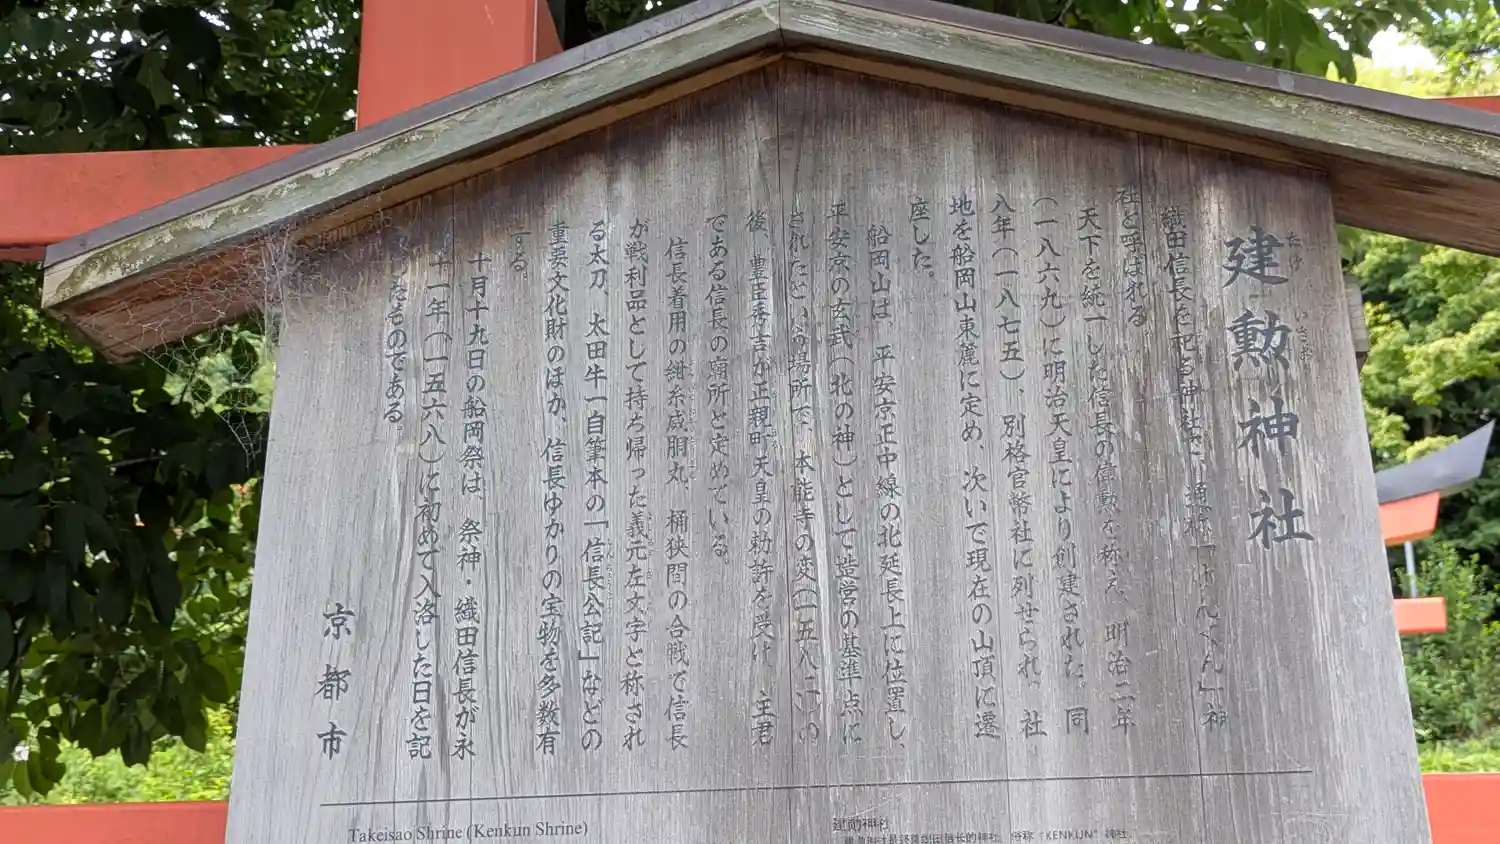 建勲神社
たけ いさお
織田信長を祀る神社で、通称「けんくん」神
社と呼ばれる
天下を統一した信長の偉勲を称え、明治二年
(一八六九)に明治天皇により創建された。同
八年(一八七五)、別格官幣社に列せられ、社
地を船岡山東麓に定め、次いで現在の山頂に遷
座した。
船岡山は、平安京正中線の北延長上に位置し、
平安京の玄武(北の神)として造営の基準点に
されたという場所で、本能寺の変(一五八二)の
後、豊臣秀吉が正親町天皇の勅許を受け、主君
である信長の廟所と定めている。
信長着用の紺糸威胴丸、桶狭間の合戦で信長
が戦利品として持ち帰った義元左文字と称され
る太刀、太田牛一自筆本の「信長公記」などの
重要文化財のほか、信長ゆかりの宝物を多数有
する。
十月十九日の船岡祭は、祭神・織田信長が永
十一年(一五六八)に初めて入洛した日を記
したものである。
京都市
Takeisao Shrine (Kenkun Shrine)
建勋神社
俗称"KENKUN"神社